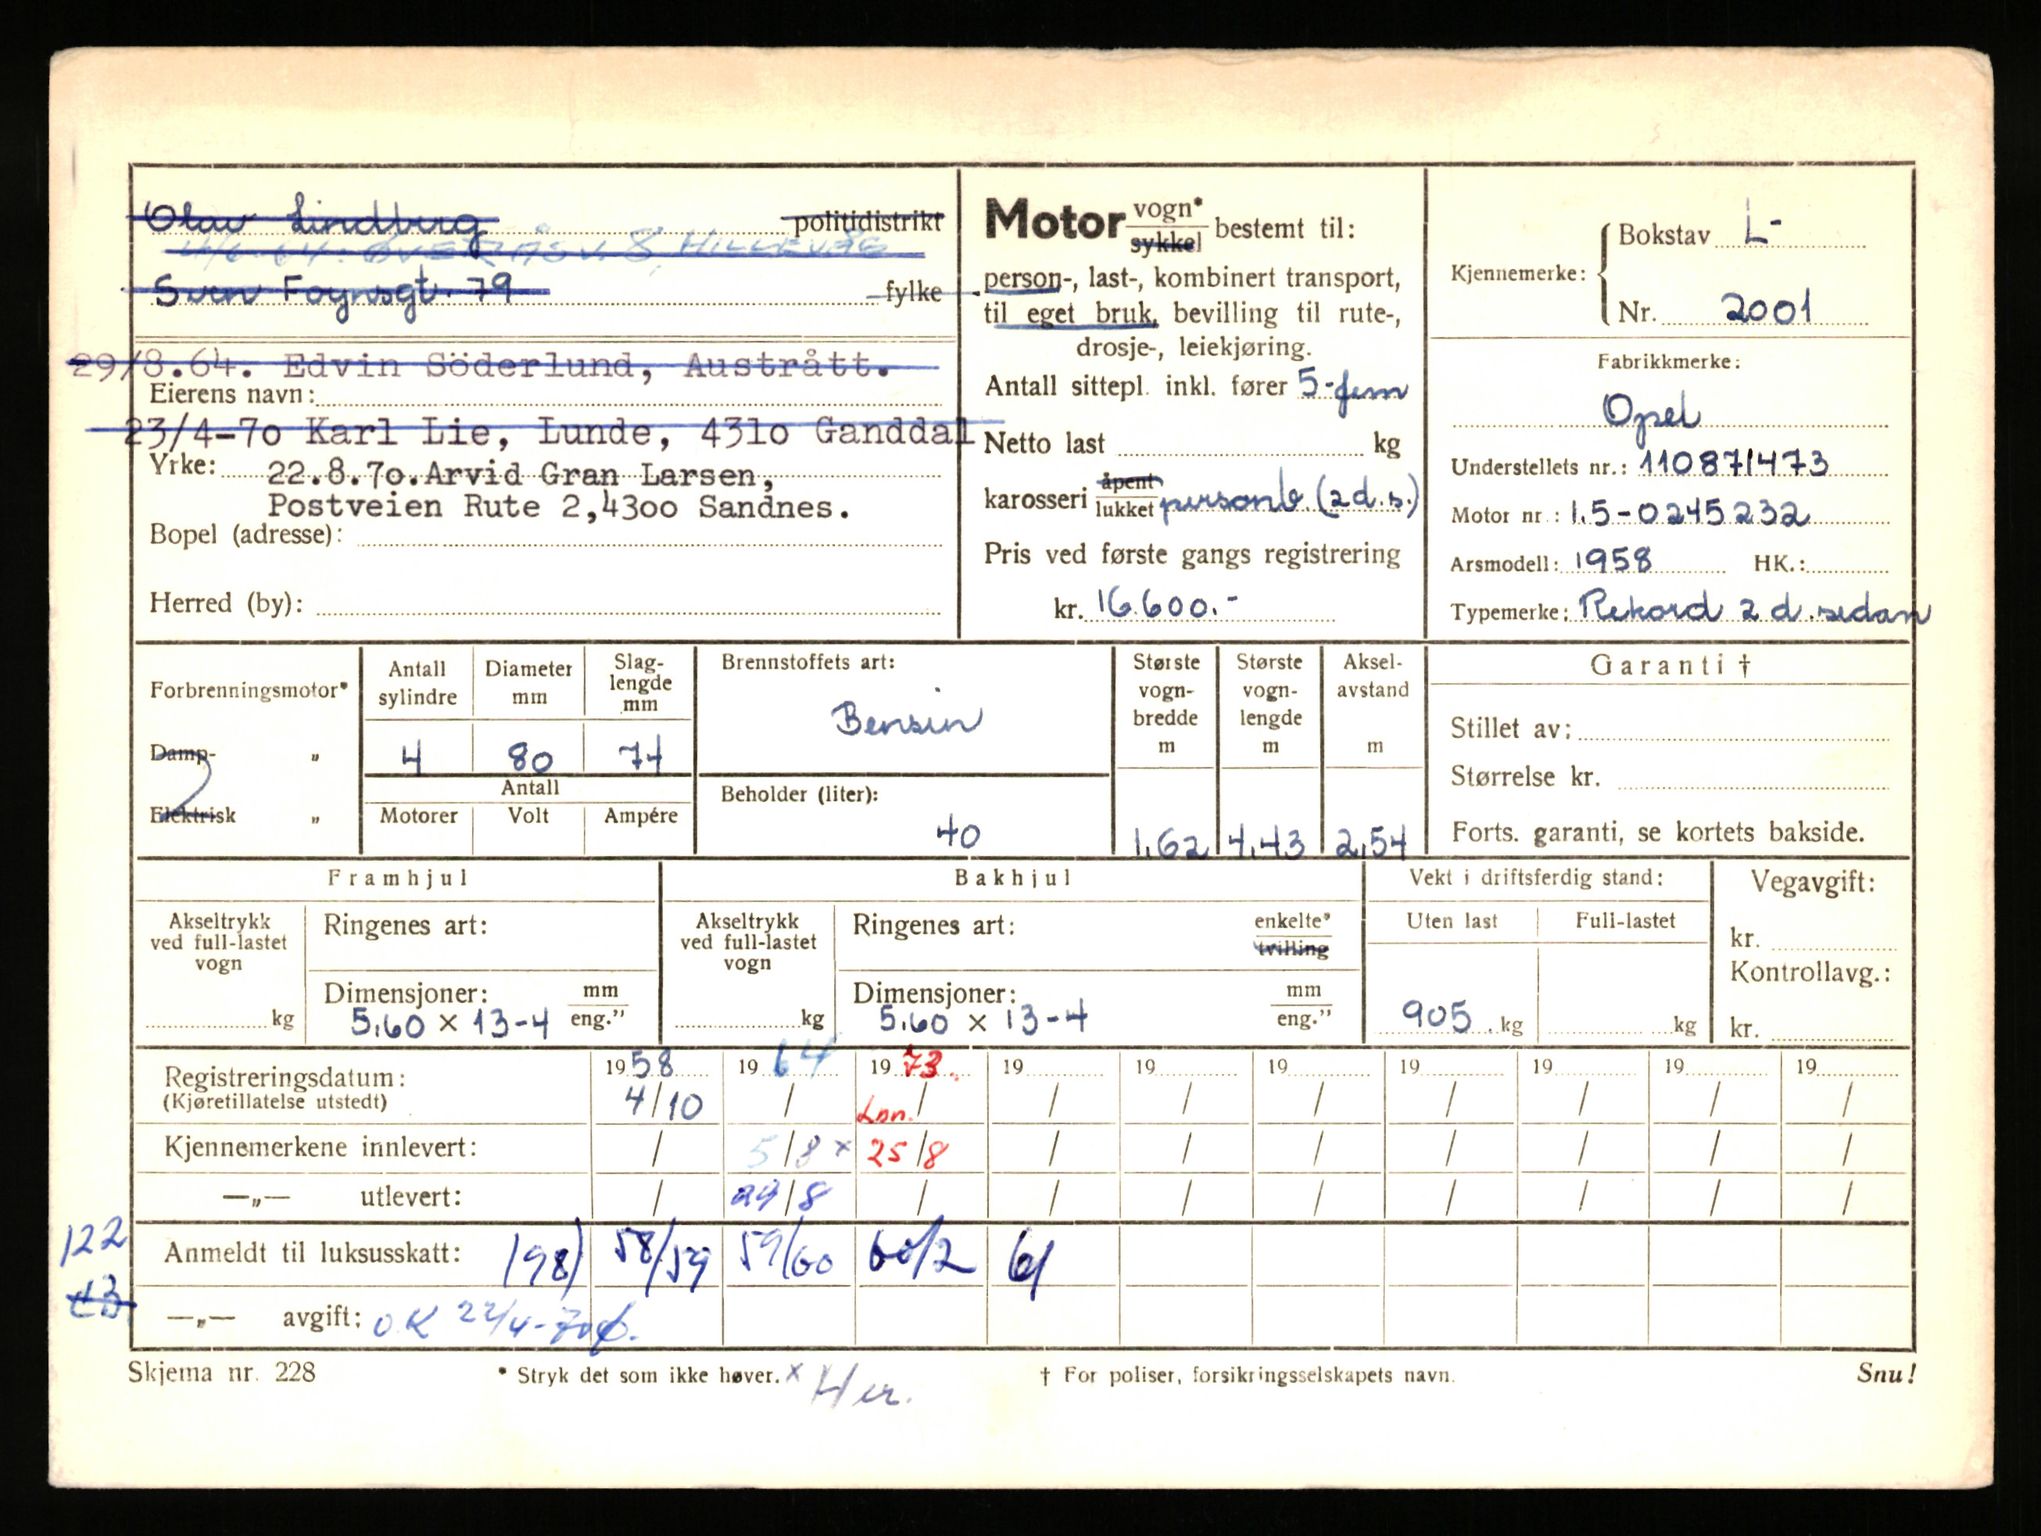 Olav Lindberg politidistrikt
HILLEVÅG
Sven Foynsgt. 79 fylke
29/8.64. Edvin Söderlund, Austrått.
Eierens navn:
23/4-70 Karl Lie, Lunde, 4310 Ganddal
Yrke: 22.8.70.Arvid Gran Larsen,
Postveien Rute 2,4300 Sandnes.
Bopel (adresse):
Herred (by):
Motor vogn* sykkel bestemt til:
person-, last-, kombinert transport,
til eget bruk, bevilling til rute-,
drosje-, leiekjøring.
Antall sittepl. inkl. fører 5-fem
Netto last kg
karosseri åpent lukket personb. (2 d.s.)
Pris ved første gangs registrering
kr. 16.600.-
Kjennemerke: Bokstav L-
Nr. 2001
Fabrikkmerke:
Opel
Understellets nr.: 110871473
Motor nr.: 1.5-0245232
Arsmodell: 1958 HK.:
Typemerke: Rekord 2 d. sedan
Forbrenningsmotor*
Damp- „
Elektrisk „
2
Antall sylindre
Diameter mm
Slag-lengde mm
4 80 74
Antall
Motorer Volt Ampére
Brennstoffets art:
Bensin
Beholder (liter):
40
Største vogn-bredde m
1,62
Største vogn-lengde m
4,43
Aksel-avstand m
2,54
Garanti †
Stillet av:
Størrelse kr.
Forts. garanti, se kortets bakside.
Framhjul
Akseltrykk ved full-lastet vogn
kg
Ringenes art:
Dimensjoner: mm eng.”
5.60 × 13-4
Bakhjul
Akseltrykk ved full-lastet vogn
kg
Ringenes art: enkelte* tvilling
Dimensjoner: mm eng.”
5.60 × 13-4
Vekt i driftsferdig stand:
Uten last Full-lastet
905 kg kg
Vegavgift:
kr.
Kontrollavg.:
kr.
Registreringsdatum: 1958 1964 1973. 19 19 19 19 19 19 19
(Kjøretillatelse utstedt) 4/10 / / / / / / / / /
Kjennemerkene innlevert: / 5/8 x 25/8 / / / / / / /
—„— utlevert: / 29/8 / / / / / / / /
122
Anmeldt til luksusskatt: 198) 58/59 59/60 60/2 61
—„— avgift: OK 22/4-70
Skjema nr. 228
* Stryk det som ikke høver. x Her.
† For poliser, forsikringsselskapets navn.
Snu!